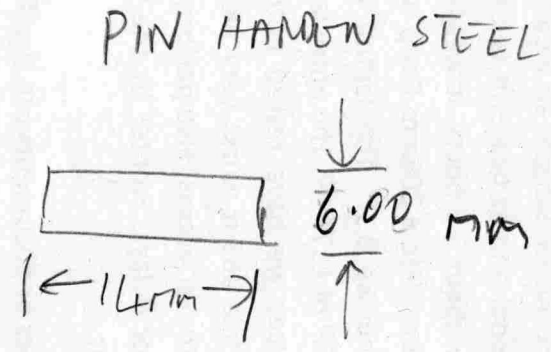 PIN HARDEN STEEL
6.00 mm
14mm